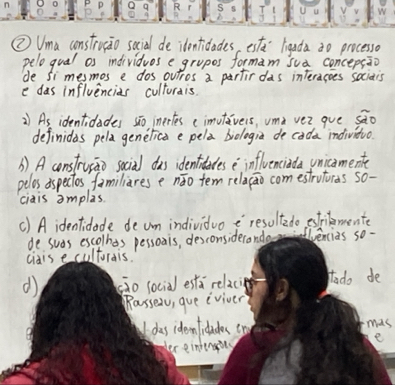 n Oo Pp Qq Rr Ss Uu
② Uma construção social de identidades está ligada ao processo
pelo qual os indivíduos e grupos formam sua concepção
de si mesmos e dos outros a partir das interações sociais
e das influências culturais.
a) As identidades são inertes e imutáveis, uma vez que são
definidas pela genética e pela biologia de cada indivíduo.
b) A construção social das identidades é influenciada unicamente
pelos aspectos familiares e não tem relação com estruturas so-
ciais amplas.
c) A identidade de um indivíduo é resultado estritamente
de suas escolhas pessoais, desconsiderando so-
ciais e culturais.
d) social está de
Rousseau, que é viver
das identidades
e